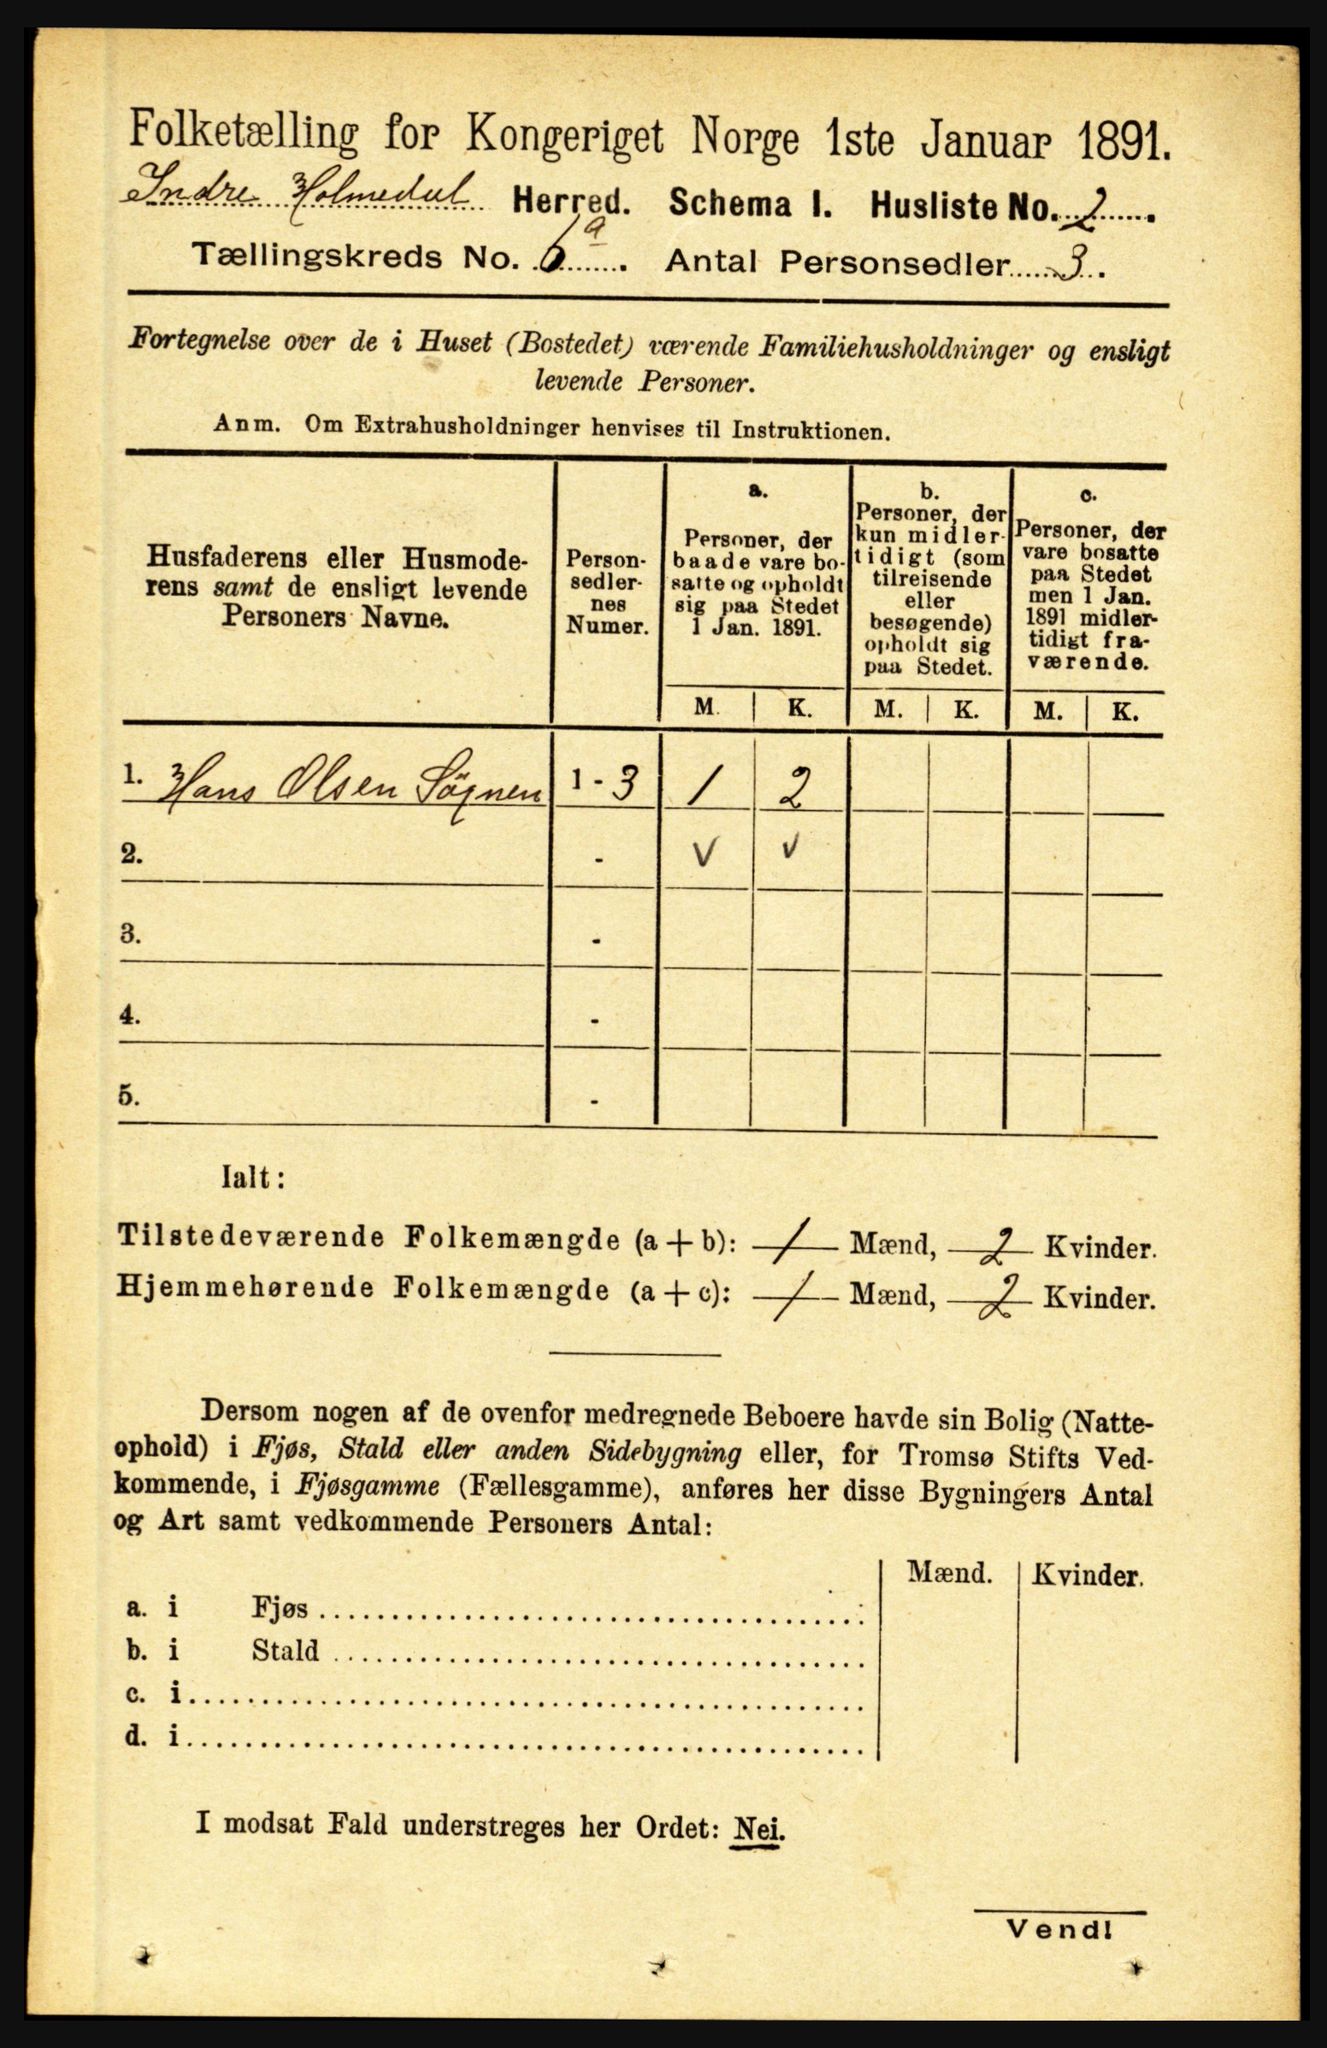 Folketælling for Kongeriget Norge 1ste Januar 1891.
Indre Holmedal Herred. Schema I. Husliste No. 2.
Tællingskreds No. 6a. Antal Personsedler 3.
Fortegnelse over de i Huset (Bostedet) værende Familiehusholdninger og ensligt
levende Personer.
Anm. Om Extrahusholdninger henvises til Instruktionen.
Husfaderens eller Husmode-
rens samt de ensligt levende
Personers Navne.
Person-
sedler-
nes
Numer.
a.
Personer, der
baade vare bo-
satte og opholdt
sig paa Stedet
1 Jan. 1891.
b.
Personer, der
kun midler-
tidigt (som
tilreisende
eller
besøgende)
opholdt sig
paa Stedet.
c.
Personer, der
vare bosatte
paa Stedet
men 1 Jan.
1891 midler-
tidigt fra-
værende.
M. K. M. K. M. K.
1. Hans Olsen Søgnen 1 - 3 1 2
2. - v v
3. -
4. -
5. -
Ialt:
Tilstedeværende Folkemængde (a + b): 1 Mænd, 2 Kvinder.
Hjemmehørende Folkemængde (a + c): 1 Mænd, 2 Kvinder.
Dersom nogen af de ovenfor medregnede Beboere havde sin Bolig (Natte-
ophold) i Fjøs, Stald eller anden Sidebygning eller, for Tromsø Stifts Ved-
kommende, i Fjøsgamme (Fællesgamme), anføres her disse Bygningers Antal
og Art samt vedkommende Personers Antal:
Mænd. Kvinder.
a. i Fjøs
b. i Stald
c. i
d. i
I modsat Fald understreges her Ordet: Nei.
Vend!